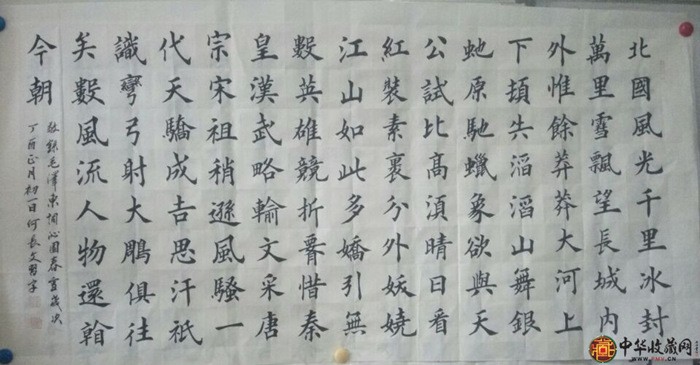 北國風光千里冰封
萬里雪飄望長城内
外惟餘莽莽大河上
下頓失滔滔山舞銀
虵原馳蠟象欲與天
公試比髙湏晴日看
紅裝素裹分外妖嬈
江山如此多嬌引無
數英雄競折腰惜秦
皇漢武略輸文采唐
宗宋祖稍遜風騷一
代天驕成吉思汗祇
識彎弓射大鵰俱往
矣數風流人物還看
今朝
敬錄毛澤東詞沁園春雪歲次
丁酉正月初一日何長文
藏
中华收藏网